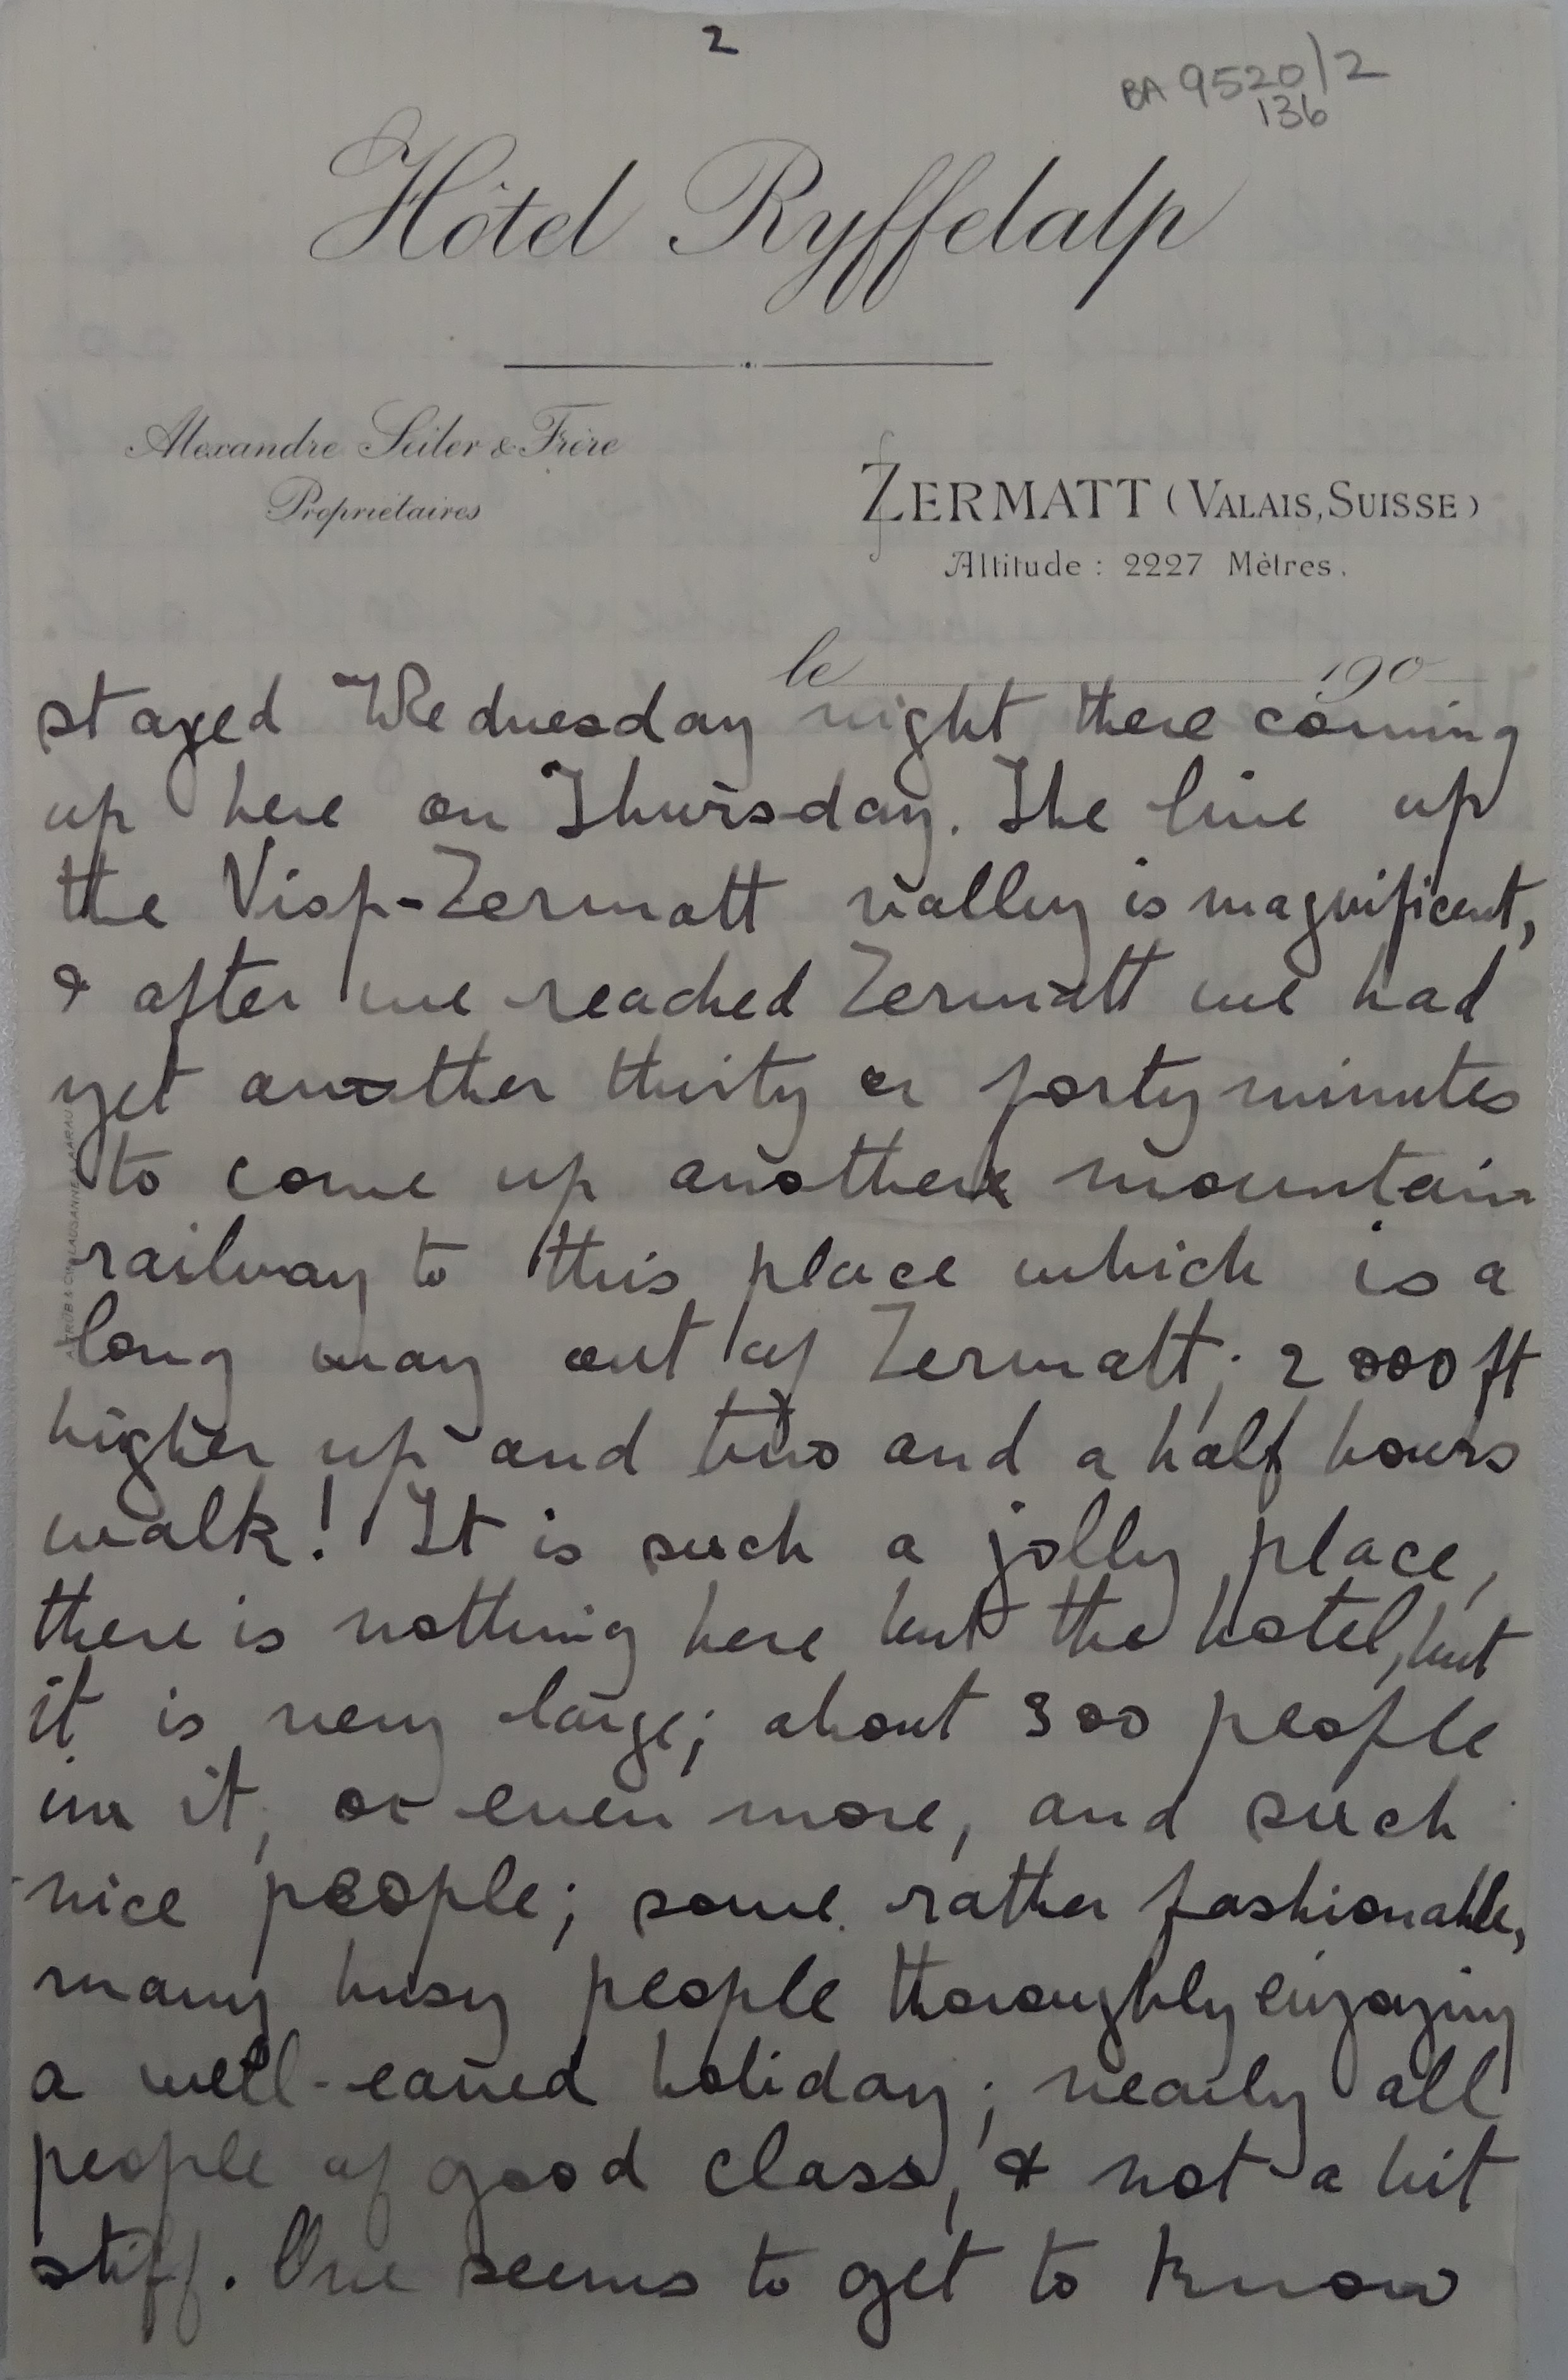 2
BA 9520/2
136
Hôtel Ryffelalp
Alexandre Seiler & Frère
Propriétaires
ZERMATT (VALAIS, SUISSE)
Altitude : 2227 Mètres.
le 190
stayed Wednesday night there coming
up here on Thursday. The line up
the Visp-Zermatt valley is magnificent,
& after we reached Zermatt we had
yet another thirty or forty minutes
to come up another mountain
railway to this place which is a
long way out of Zermatt; 2000 ft
higher up and two and a half hours
walk! It is such a jolly place,
there is nothing here but the hotel, but
it is very large; about 300 people
in it, or even more, and such
nice people; some rather fashionable,
many busy people thoroughly enjoying
a well-earned holiday; nearly all
people of good class, & not a bit
stiff. One seems to get to know
A. TRÜB & CIE LAUSANNE & AARAU